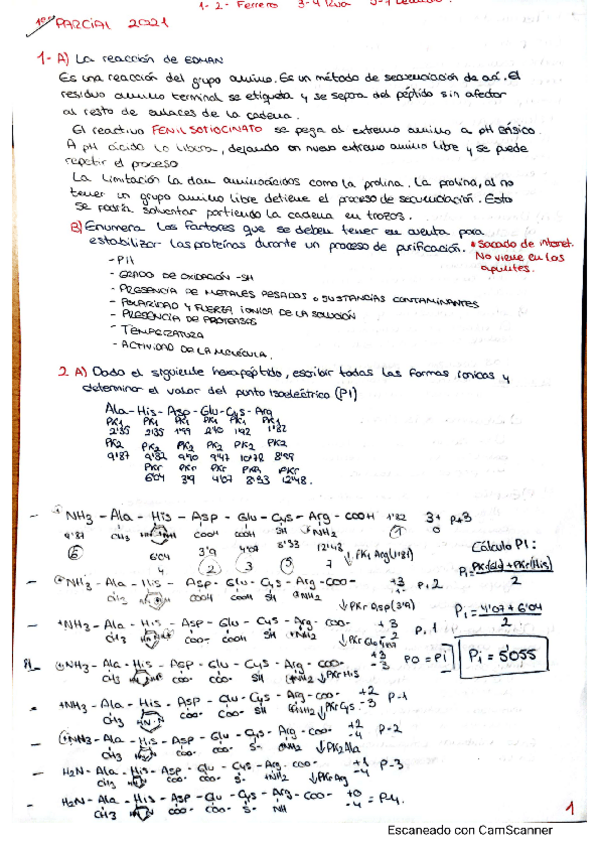 1- 2- Ferrero 3-4
1er PARCIAL 2021
1- A) La reacción de EDMAN
Es una reacción del grupo amino. Es un método de secuenciación de aá. El
residuo amino terminal se etiqueta y se separa del péptido sin afectar
al resto de enlaces de la cadena.
El reactivo FENILISOTIOCINATO se pega al extremo amino a pH básico.
A pH ácido lo libera, dejando un nuevo extremo amino libre y se puede
repetir el proceso
La limitación la dan aminoácidos como la prolina. La prolina, al no
tener un grupo amino libre detiene el proceso de secuenciación. Esto
se podría solventar partiendo la cadena en trozos.
B) Enumera los factores que se deben tener en cuenta para
estabilizar las proteínas durante un proceso de purificación. * Sacado de internet.
No viene en los
apuntes.
- PH
- GRADO DE OXIDACIÓN -SH
- PRESENCIA DE METALES PESADOS o SUSTANCIAS CONTAMINANTES
- POLARIDAD Y FUERZA IÓNICA DE LA SOLUCIÓN
- PRESENCIA DE PROTEASAS
- TEMPERATURA
- ACTIVIDAD DE LA MOLÉCULA.
2. A) Dado el siguiente hexapéptido, escribir todas las formas iónicas y
determinar el valor del punto isoeléctrico (PI)
Ala-His-Asp-Glu-Cys-Arg
PK1 PK1 PK1 PK1 PK1 PK1
2'35 1'99 2'10 1'92 1'82
PK2 PK2 PK2 PK2 PK2 PK2
9'87 9'82 9'90 9'47 10'78 8'99
PKr PKr PKr PKr PKr
6'04 3'9 4'07 8'33 12'48.
- +NH3 - Ala - His - Asp - Glu - Cys - Arg - COOH 1'82 3+ P+3
9'87 CH3 COOH COOH SH +NH2 1 0
6 6'04 3'9 4'07 8'33 12'48 ↓PK1 Arg
4 2 3 5 7
Cálculo PI:
Pi = PKr(Glu) + PKr(His) / 2
- +NH3 - Ala - His - Asp - Glu - Cys - Arg - COO- +3 P+2
CH3 COOH COOH SH +NH2 ↓PKr Asp (3'9)
Pi = 4'07 + 6'04 / 2
- +NH3 - Ala - His - Asp - Glu - Cys - Arg - COO- +3 P+1
CH3 COO- COOH SH +NH2 ↓PKr Glu -2
PI_ +NH3 - Ala - His - Asp - Glu - Cys - Arg - COO- +3 -3 P0 = Pi
CH3 COO- COO- SH +NH2 ↓PKr His
Pi = 5'055
- +NH3 - Ala - His - Asp - Glu - Cys - Arg - COO- +2 P-1
CH3 HN N COO- COO- SH +NH2 ↓PKr Cys -3
- +NH3 - Ala - His - Asp - Glu - Cys - Arg - COO- +2 P-2
CH3 COO- COO- S- +NH2 ↓PK2 Ala -4
- H2N - Ala - His - Asp - Glu - Cys - Arg - COO- +1 P-3
CH3 COO- COO- S- +NH2 ↓PKr Arg -4
- H2N - Ala - His - Asp - Glu - Cys - Arg - COO- +0 -4 = P-4.
CH3 COO- COO- S- NH
1
Escaneado con CamScanner